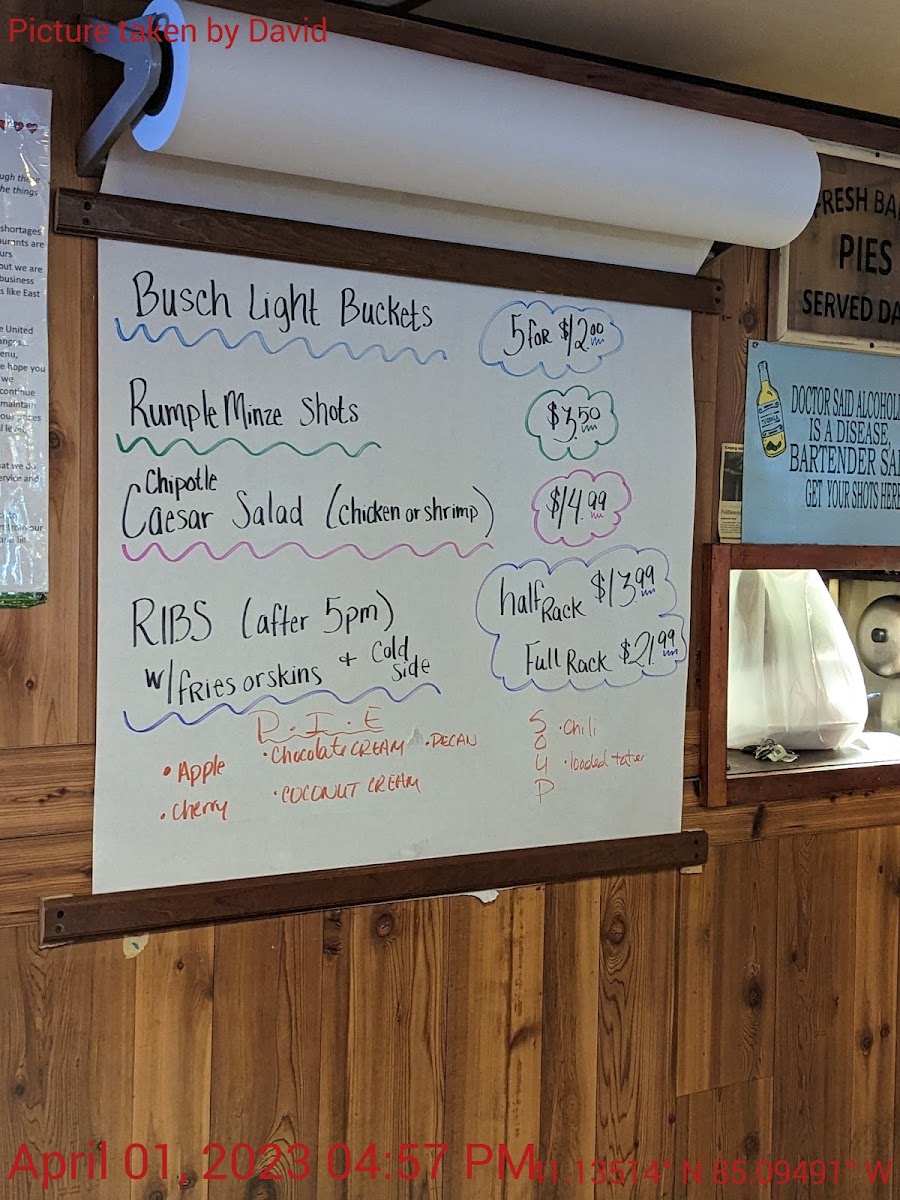 Picture taken by David
ugh these
he things
shortages
urants are
urs
out we are
business
s like East
e United
enu,
e hope you
we
continue
maintain
ous prices
at we do
ervice and
FRESH BA
PIES
SERVED DA
Busch Light Buckets 5 for $12.00
Rumple Minze Shots $3.50
Chipotle
Caesar Salad (chicken or shrimp) $14.99
RIBS (after 5pm) half Rack $13.99
w/fries or skins + cold side Full Rack $21.99
P.I.E
• Apple • Chocolate CREAM • PECAN
• Cherry • COCONUT CREAM
SOUP
• Chili
• loaded tater
DOCTOR SAID ALCOHOL
IS A DISEASE,
BARTENDER SAI
GET YOUR SHOTS HERE
April 01, 2023 04:57 PM
41.13514° N 85.09491° W